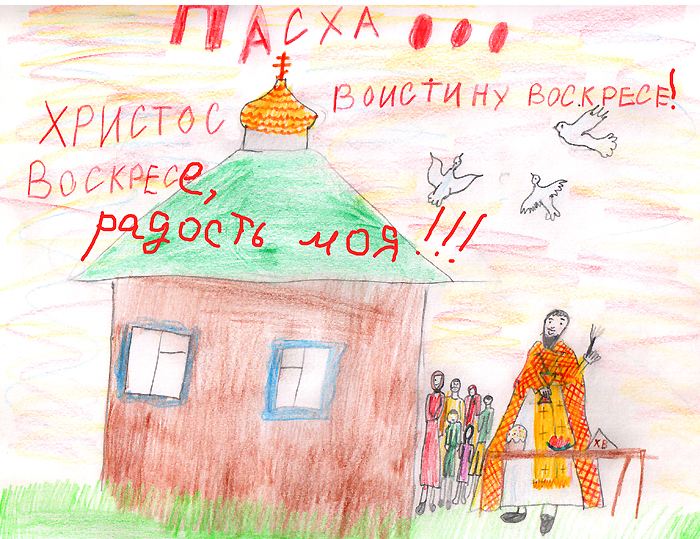 ПАСХА
ХРИСТОС
ВОСКРЕСе,
радость моя!!!
ВОИСТИНУ ВОСКРЕСЕ!
ХВ